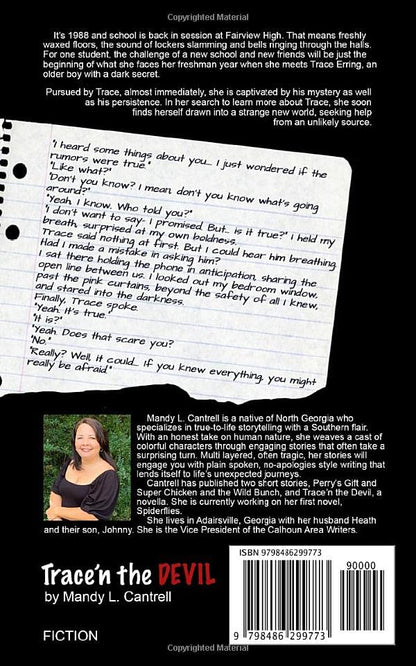 Copyrighted Material
It's 1988 and school is back in session at Fairview High. That means freshly
waxed floors, the sound of lockers slamming and bells ringing through the halls.
For one student, the challenge of a new school and new friends will be just the
beginning of what she faces her freshman year when she meets Trace Erring, an
older boy with a dark secret.
Pursued by Trace, almost immediately, she is captivated by his mystery as well
as his persistence. In her search to learn more about Trace, she soon
finds herself drawn into a strange new world, seeking help
from an unlikely source.
"I heard some things about you... I just wondered if the
rumors were true."
"Like what?"
"Don't you know? I mean, don't you know what's going
around?"
"Yeah, I know. Who told you?"
"I don't want to say- I promised. But... is it true?" I held my
breath, surprised at my own boldness.
Trace said nothing at first. But I could hear him breathing.
Had I made a mistake in asking him?
I sat there holding the phone in anticipation, sharing the
open line between us. I looked out my bedroom window,
past the pink curtains, beyond the safety of all I knew,
and stared into the darkness.
Finally, Trace spoke.
"Yeah. It's true."
"It is?"
"Yeah. Does that scare you?"
"No."
"Really? Well, it could... if you knew everything, you might
really be afraid."
Mandy L. Cantrell is a native of North Georgia who
specializes in true-to-life storytelling with a Southern flair.
With an honest take on human nature, she weaves a cast of
colorful characters through engaging stories that often take a
surprising turn. Multi layered, often tragic, her stories will
engage you with plain spoken, no-apologies style writing that
lends itself to life's unexpected journeys.
Cantrell has published two short stories, Perry's Gift and
Super Chicken and the Wild Bunch, and Trace'n the Devil, a
novella. She is currently working on her first novel,
Spiderflies.
She lives in Adairsville, Georgia with her husband Heath
and their son, Johnny. She is the Vice President of the Calhoun Area Writers.
Trace'n the DEVIL
by Mandy L. Cantrell
FICTION
ISBN 9798486299773
90000
9 798486 299773
Copyrighted Material